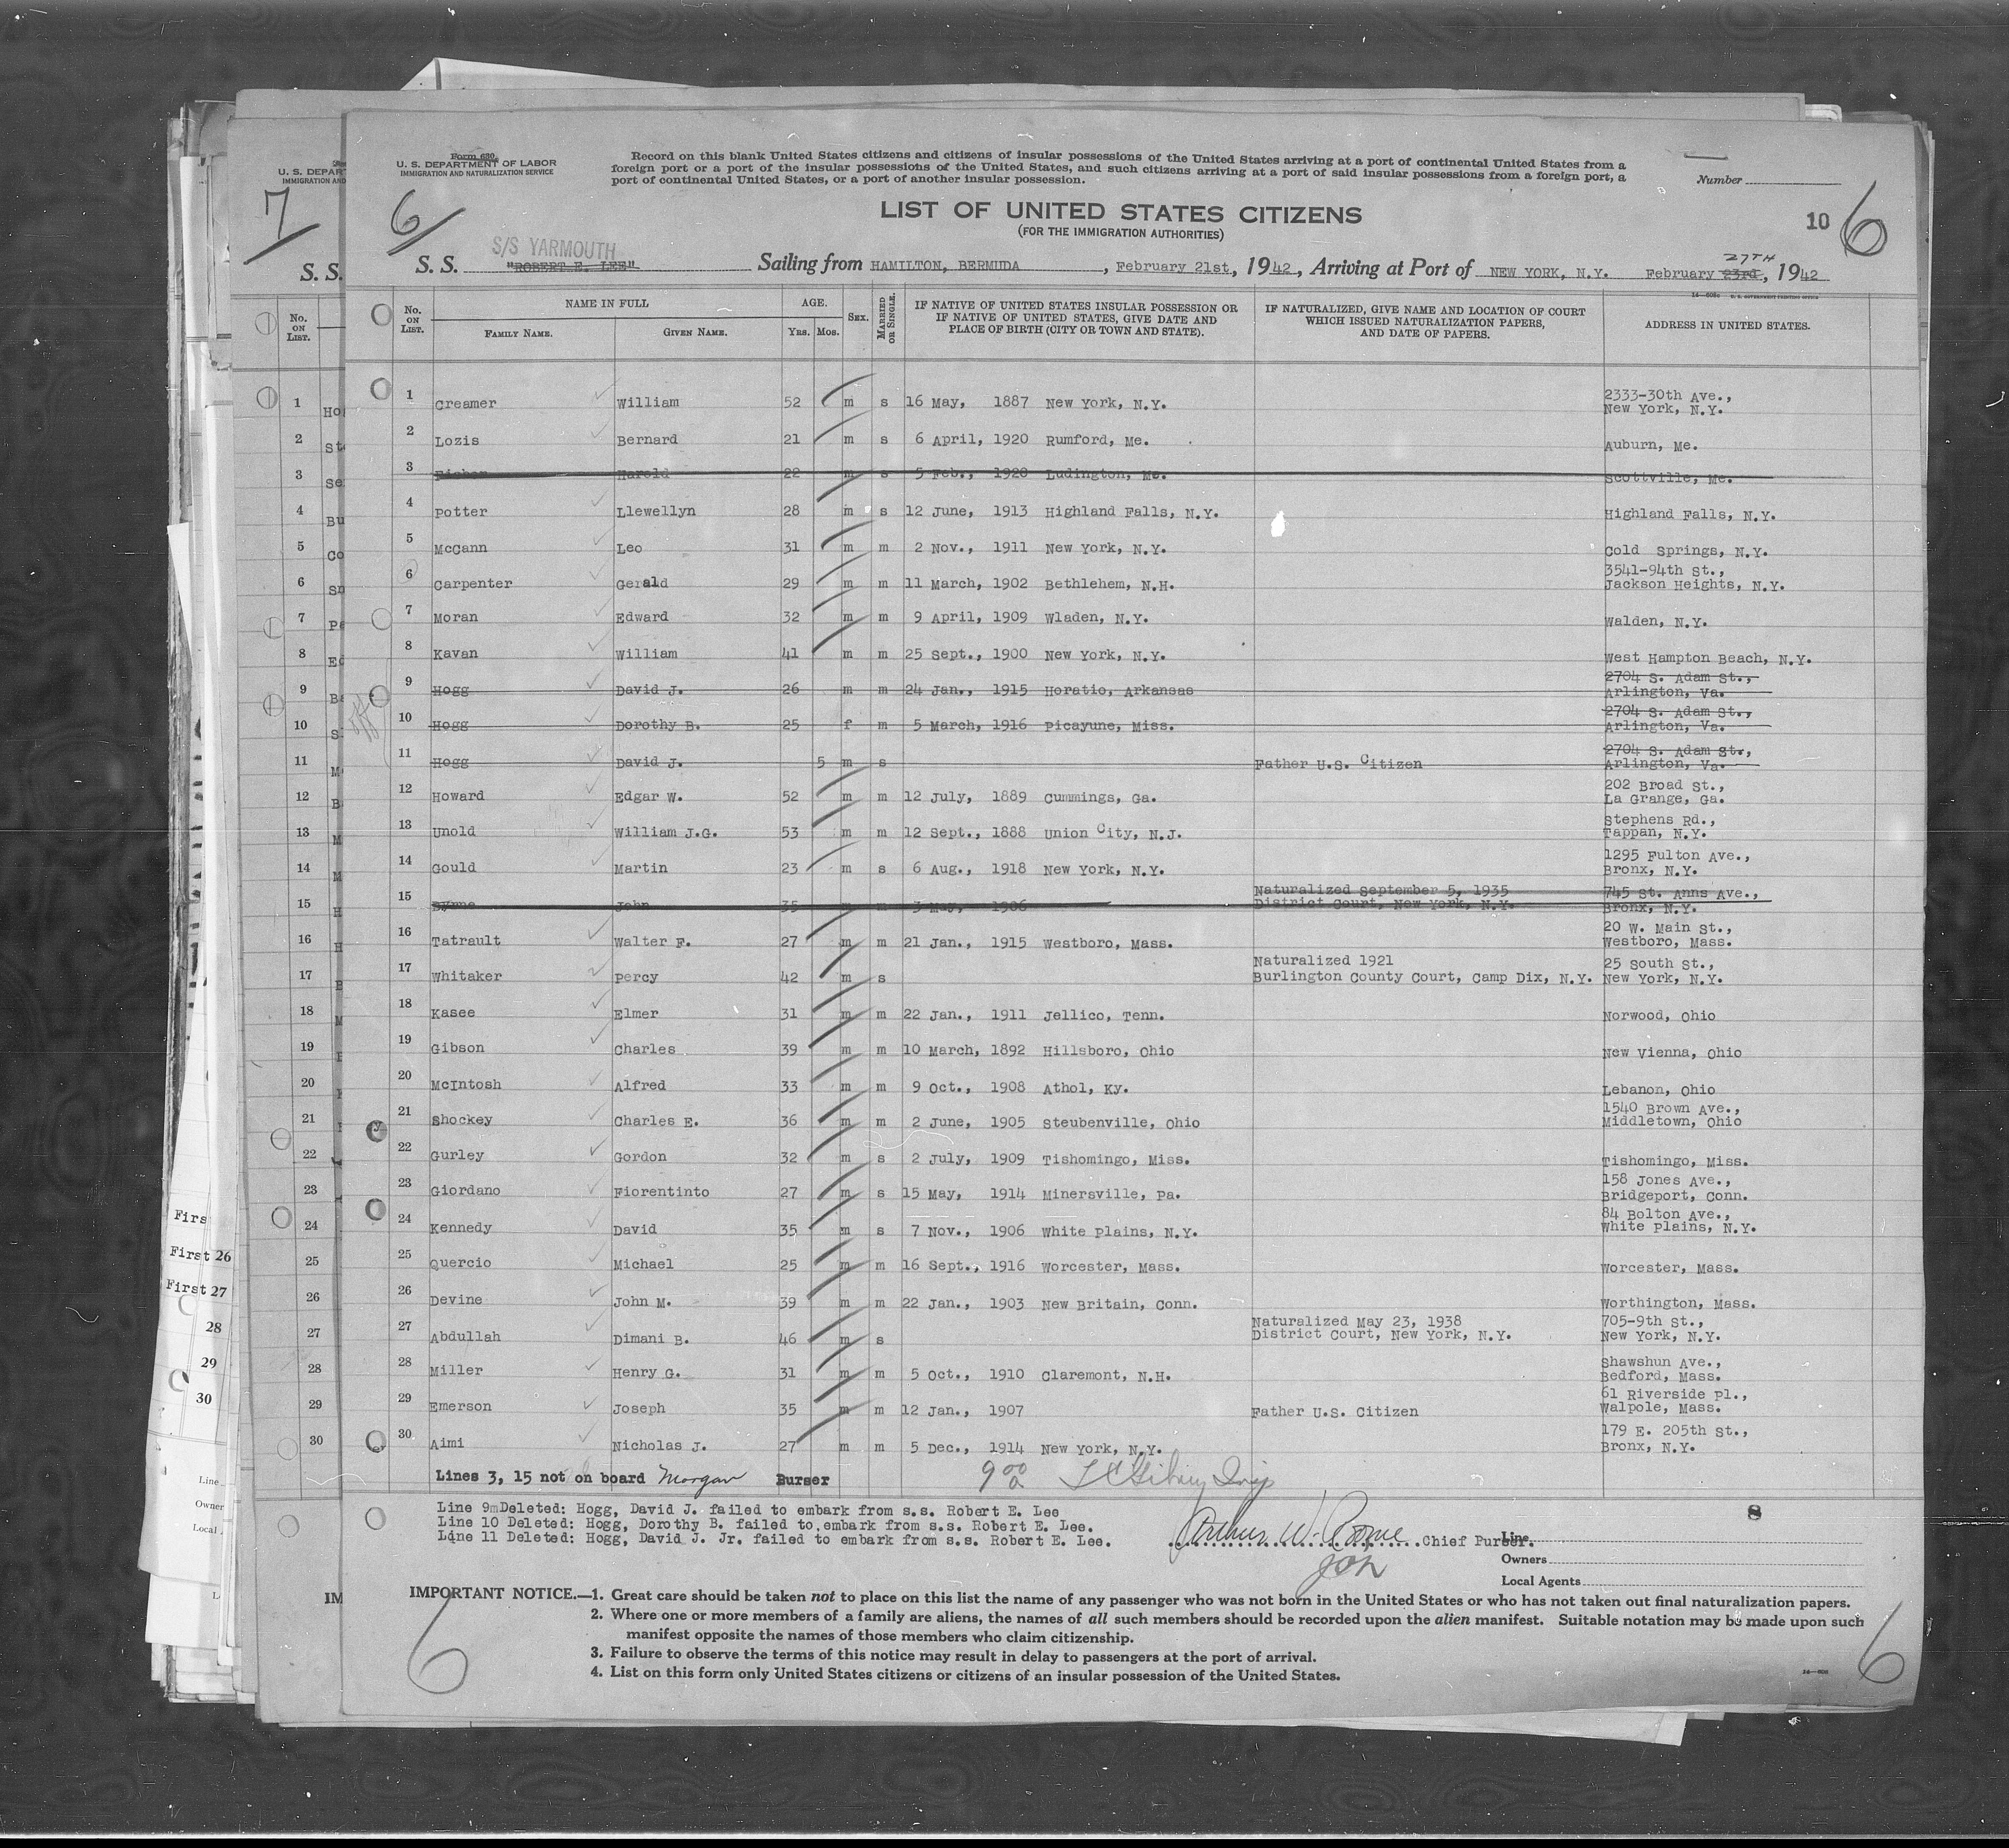 Form 630
U. S. DEPARTMENT OF LABOR
IMMIGRATION AND NATURALIZATION SERVICE
Record on this blank United States citizens and citizens of insular possessions of the United States arriving at a port of continental United States from a
foreign port or a port of the insular possessions of the United States, and such citizens arriving at a port of said insular possessions from a foreign port, a
port of continental United States, or a port of another insular possession.
Number
LIST OF UNITED STATES CITIZENS
(FOR THE IMMIGRATION AUTHORITIES)
10
6
6
7
S/S YARMOUTH
S. S. "ROBERT E. LEE" Sailing from HAMILTON, BERMUDA, February 21st, 1942, Arriving at Port of NEW YORK, N.Y. February 23rd 27TH, 1942
No. ON LIST. NAME IN FULL FAMILY NAME. GIVEN NAME. AGE. YRS. MOS. SEX. MARRIED OR SINGLE. IF NATIVE OF UNITED STATES INSULAR POSSESSION OR IF NATIVE OF UNITED STATES, GIVE DATE AND PLACE OF BIRTH (CITY OR TOWN AND STATE). IF NATURALIZED, GIVE NAME AND LOCATION OF COURT WHICH ISSUED NATURALIZATION PAPERS, AND DATE OF PAPERS. ADDRESS IN UNITED STATES.
1 Creamer William 52 m s 16 May, 1887 New York, N.Y. 2333-30th Ave., New York, N.Y.
2 Lozis Bernard 21 m s 6 April, 1920 Rumford, Me. Auburn, Me.
3 Fisher Harold 22 m s 5 Feb., 1920 Ludington, Me. Scottville, Me.
4 Potter Llewellyn 28 m s 12 June, 1913 Highland Falls, N.Y. Highland Falls, N.Y.
5 McCann Leo 31 m m 2 Nov., 1911 New York, N.Y. Cold Springs, N.Y.
6 Carpenter Gerald 29 m m 11 March, 1902 Bethlehem, N.H. 3541-94th St., Jackson Heights, N.Y.
7 Moran Edward 32 m m 9 April, 1909 Wladen, N.Y. Walden, N.Y.
8 Kavan William 41 m m 25 Sept., 1900 New York, N.Y. West Hampton Beach, N.Y.
9 Hogg David J. 26 m m 24 Jan., 1915 Horatio, Arkansas 2704 S. Adam St., Arlington, Va.
10 Hogg Dorothy B. 25 f m 5 March, 1916 Picayune, Miss. 2704 S. Adam St., Arlington, Va.
11 Hogg David J. 5 m s Father U.S. Citizen 2704 S. Adam St., Arlington, Va.
12 Howard Edgar W. 52 m m 12 July, 1889 Cummings, Ga. 202 Broad St., La Grange, Ga.
13 Unold William J.G. 53 m m 12 Sept., 1888 Union City, N.J. Stephens Rd., Tappan, N.Y.
14 Gould Martin 23 m s 6 Aug., 1918 New York, N.Y. 1295 Fulton Ave., Bronx, N.Y.
15 Byrne John 35 m m 3 May, 1906 Naturalized September 5, 1935 District Court, New York, N.Y. 745 St. Anns Ave., Bronx, N.Y.
16 Tatrault Walter F. 27 m m 21 Jan., 1915 Westboro, Mass. 20 W. Main St., Westboro, Mass.
17 Whitaker Percy 42 m s Naturalized 1921 Burlington County Court, Camp Dix, N.Y. 25 South St., New York, N.Y.
18 Kasee Elmer 31 m m 22 Jan., 1911 Jellico, Tenn. Norwood, Ohio
19 Gibson Charles 39 m m 10 March, 1892 Hillsboro, Ohio New Vienna, Ohio
20 McIntosh Alfred 33 m m 9 Oct., 1908 Athol, Ky. Lebanon, Ohio
21 Shockey Charles E. 36 m m 2 June, 1905 Steubenville, Ohio 1540 Brown Ave., Middletown, Ohio
22 Gurley Gordon 32 m s 2 July, 1909 Tishomingo, Miss. Tishomingo, Miss.
23 Giordano Fiorentinto 27 m s 15 May, 1914 Minersville, Pa. 158 Jones Ave., Bridgeport, Conn.
24 Kennedy David 35 m s 7 Nov., 1906 White Plains, N.Y. 84 Bolton Ave., White Plains, N.Y.
25 Quercio Michael 25 m m 16 Sept., 1916 Worcester, Mass. Worcester, Mass.
26 Devine John M. 39 m m 22 Jan., 1903 New Britain, Conn. Worthington, Mass.
27 Abdullah Dimani B. 46 m s Naturalized May 23, 1938 District Court, New York, N.Y. 705-9th St., New York, N.Y.
28 Miller Henry G. 31 m m 5 Oct., 1910 Claremont, N.H. Shawshun Ave., Bedford, Mass.
29 Emerson Joseph 35 m m 12 Jan., 1907 Father U.S. Citizen 61 Riverside Pl., Walpole, Mass.
30 Aimi Nicholas J. 27 m m 5 Dec., 1914 New York, N.Y. 179 E. 205th St., Bronx, N.Y.
Lines 3, 15 not on board Morgan Purser
Line 9mDeleted: Hogg, David J. failed to embark from s.s. Robert E. Lee
Line 10 Deleted: Hogg, Dorothy B. failed to embark from s.s. Robert E. Lee.
Line 11 Deleted: Hogg, David J. Jr. failed to embark from s.s. Robert E. Lee.
Chief Purser.
8
Line
Owners
Local Agents
IMPORTANT NOTICE.—1. Great care should be taken not to place on this list the name of any passenger who was not born in the United States or who has not taken out final naturalization papers.
2. Where one or more members of a family are aliens, the names of all such members should be recorded upon the alien manifest. Suitable notation may be made upon such
manifest opposite the names of those members who claim citizenship.
3. Failure to observe the terms of this notice may result in delay to passengers at the port of arrival.
4. List on this form only United States citizens or citizens of an insular possession of the United States.
6
6